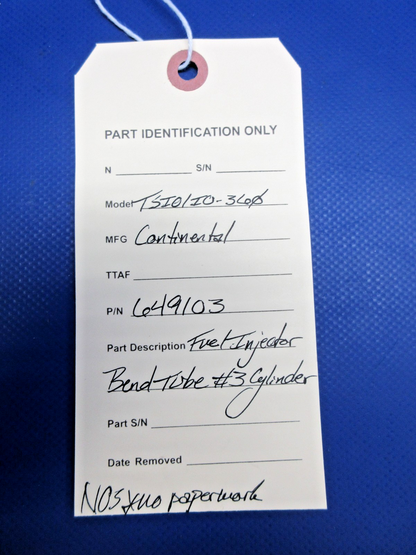 PART IDENTIFICATION ONLY
N S/N
Model TSIO/IO-360
MFG Continental
TTAF
P/N 649103
Part Description Fuel Injector
Bend Tube #3 Cylinder
Part S/N
Date Removed
NOS no paperwork